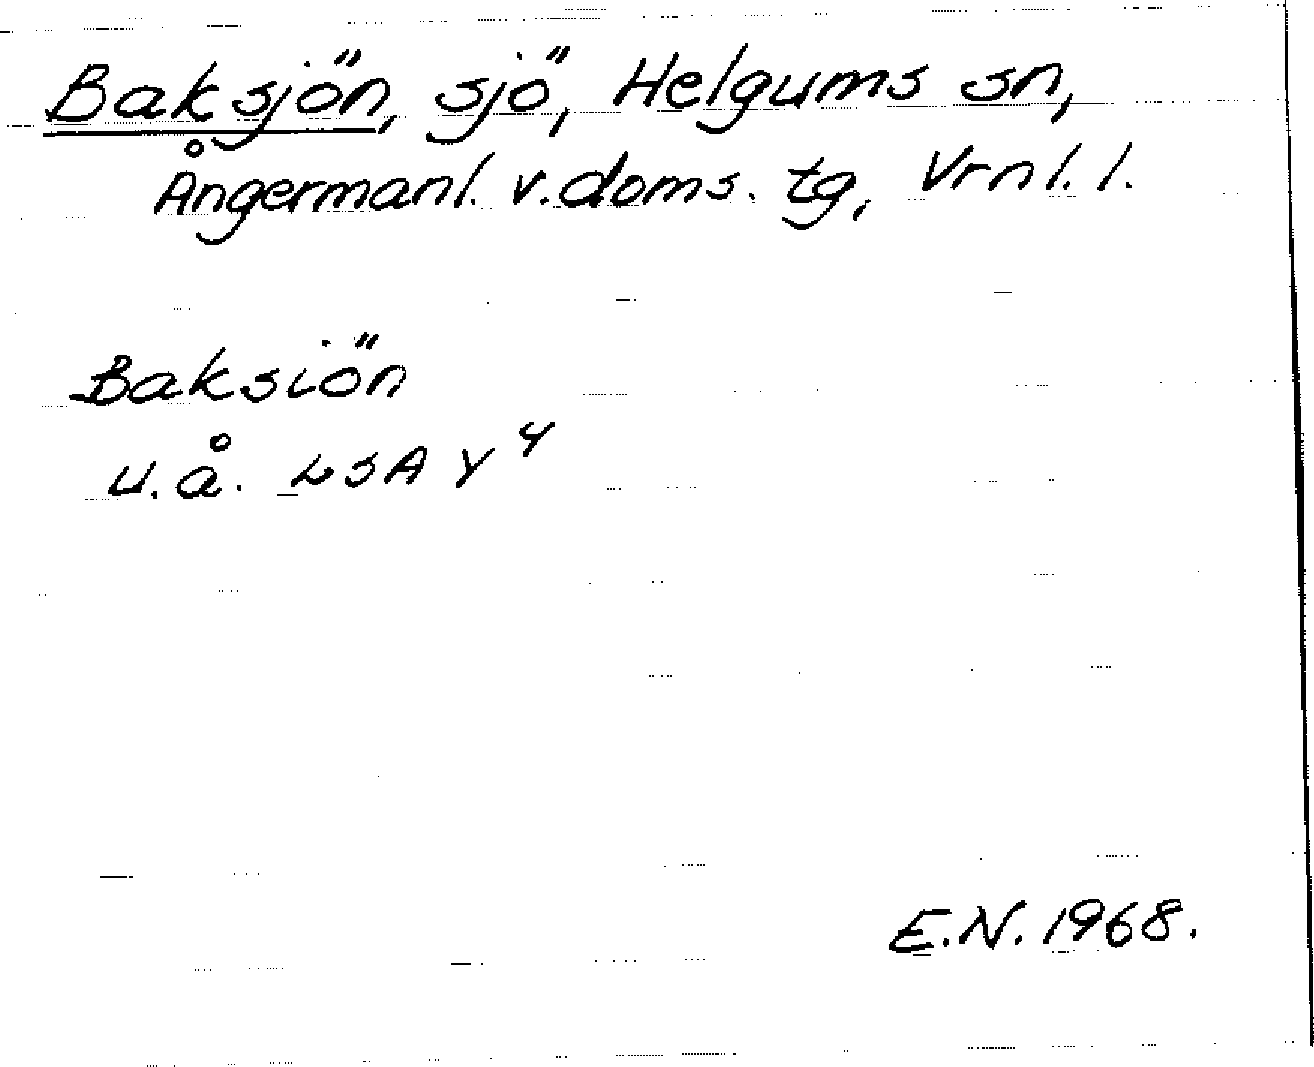 Baksjön, sjö, Helgums sn,
Ångermanl. v. doms. tg, Vrnl. l.
Baksiön
u.å. LSA Y 4
E.N. 1968.